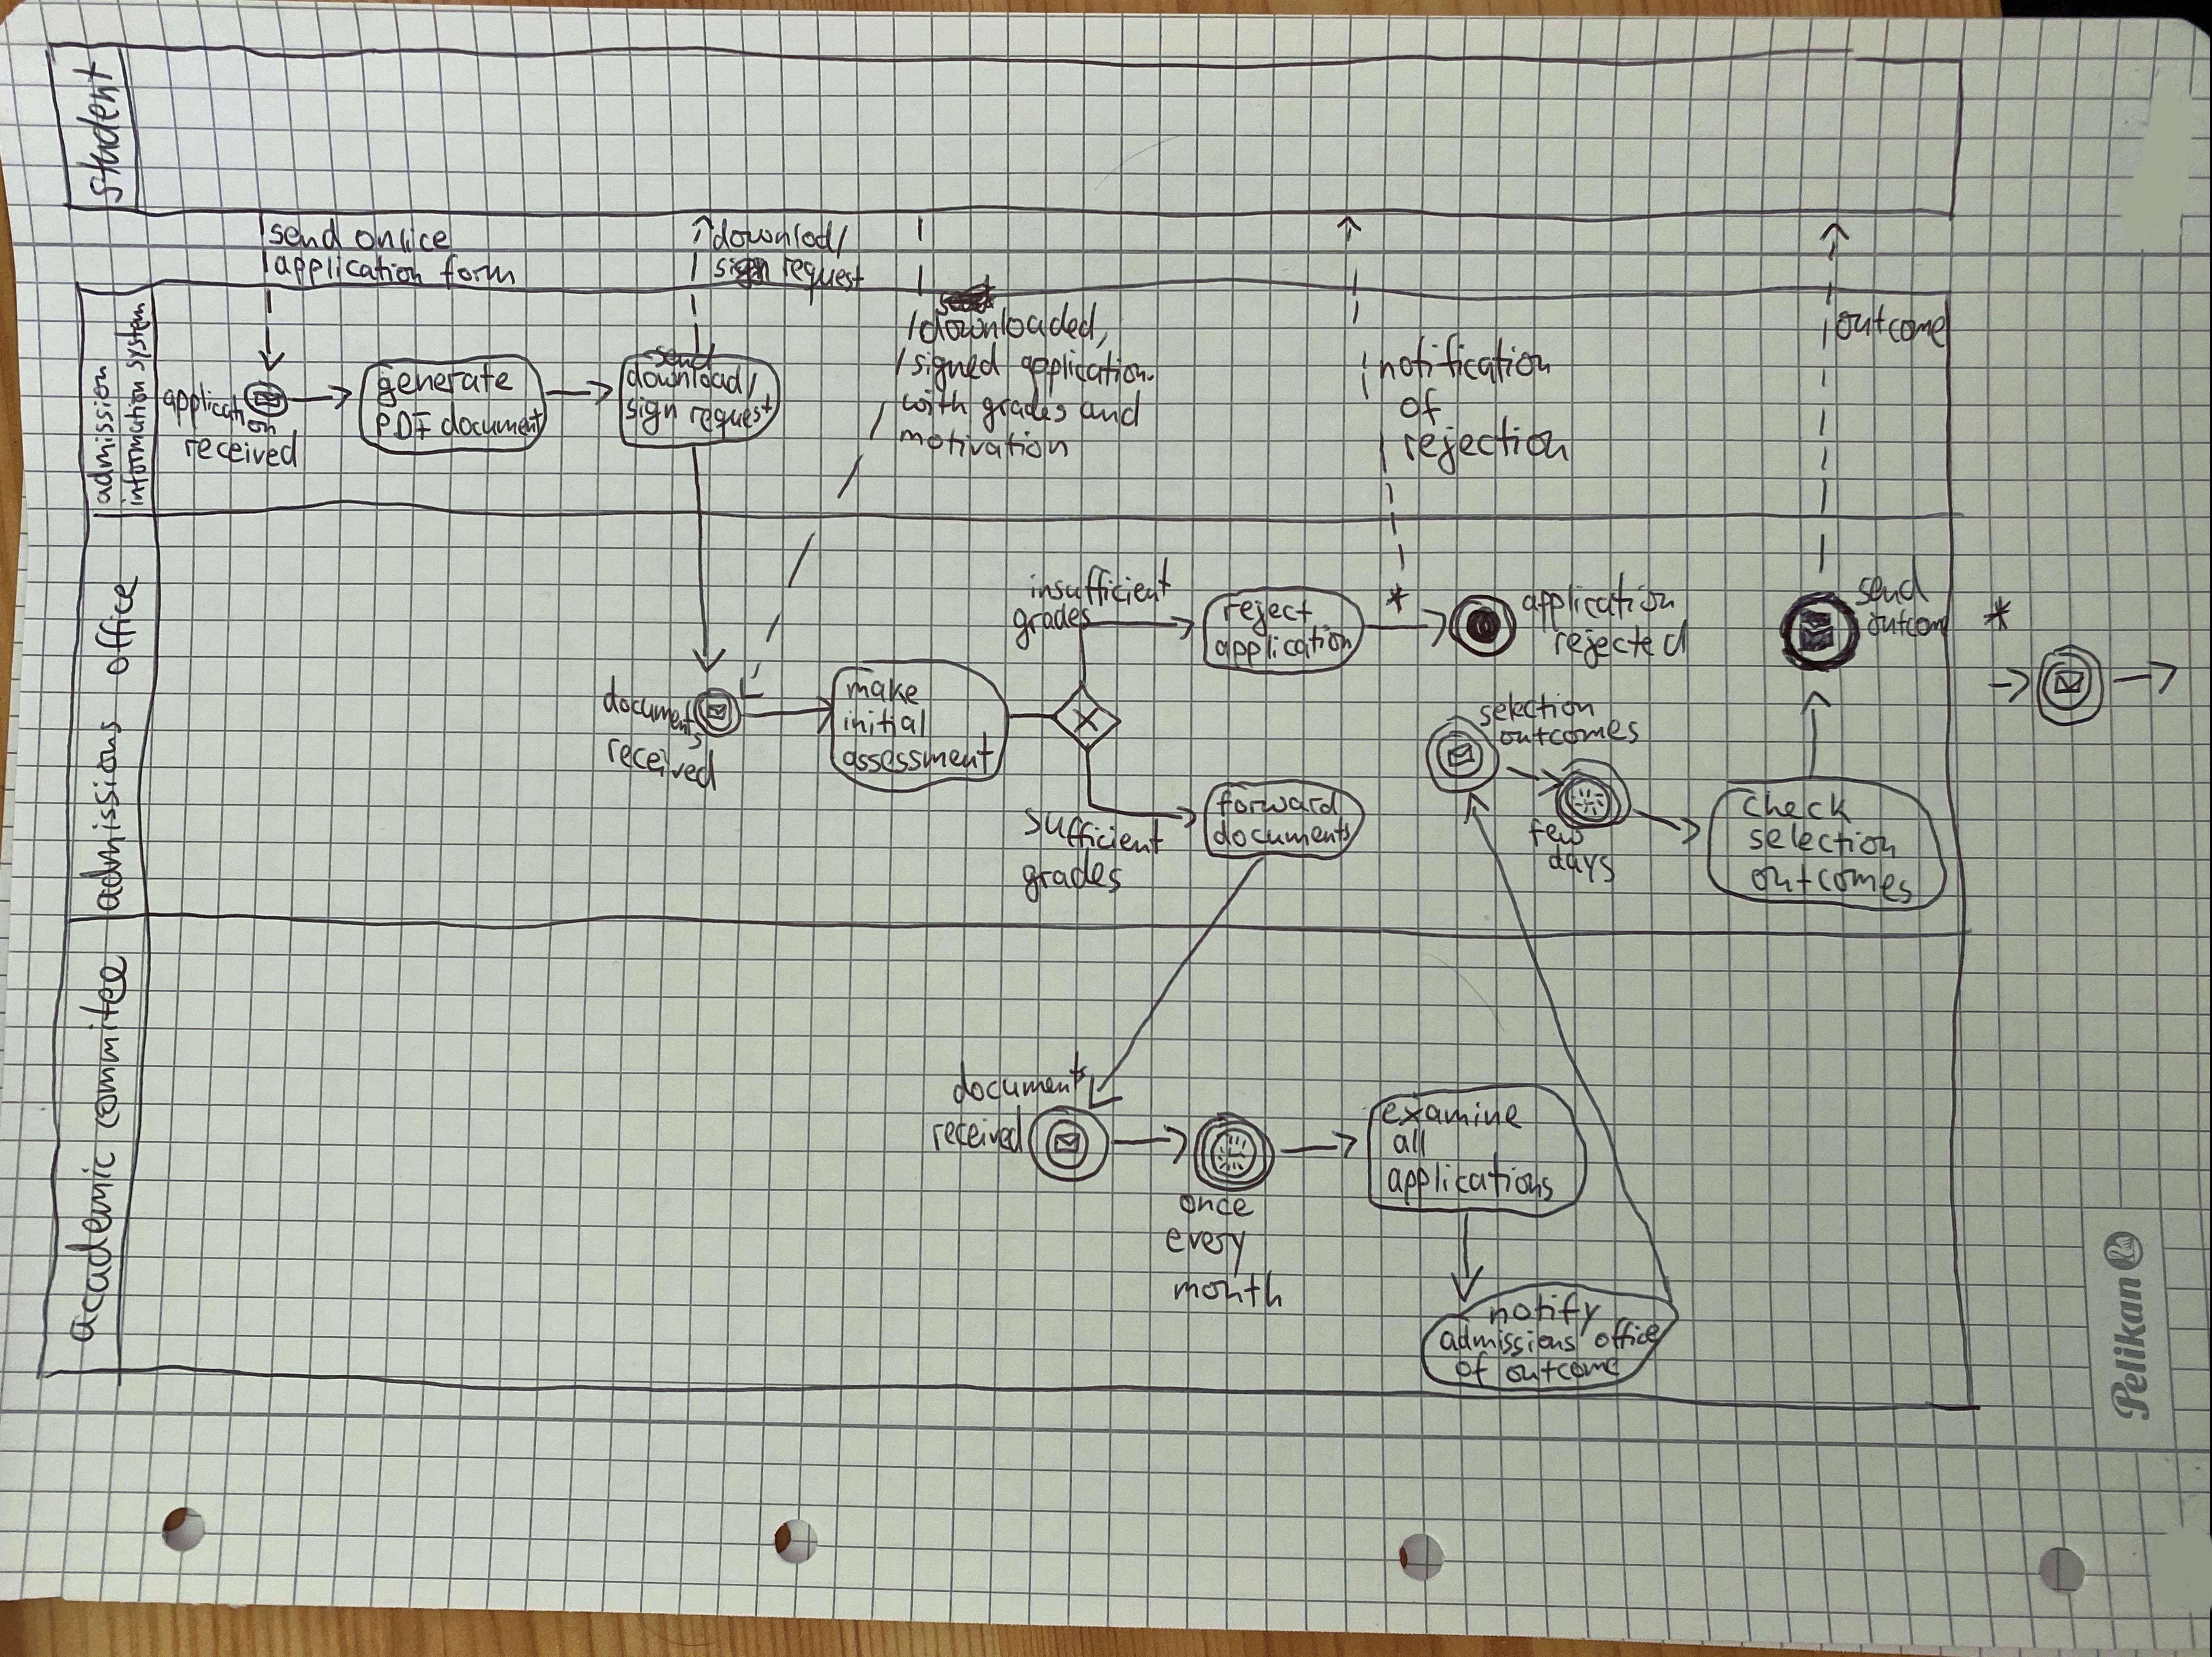 student
send online
application form
downlod/
sign request
downloaded,
signed application
with grades and
motivation
notification
of
rejection
outcome
admission
information system
application
received
generate
PDF document
send
download/
sign request
admissions office
documents
received
make
initial
assessment
insufficient
grades
sufficient
grades
reject
application
*
application
rejected
forward
documents
selection
outcomes
few
days
check
selection
outcomes
send
outcom
*
academic commitee
documents
received
once
every
month
examine
all
applications
notify
admissions office
of outcome
Pelikan